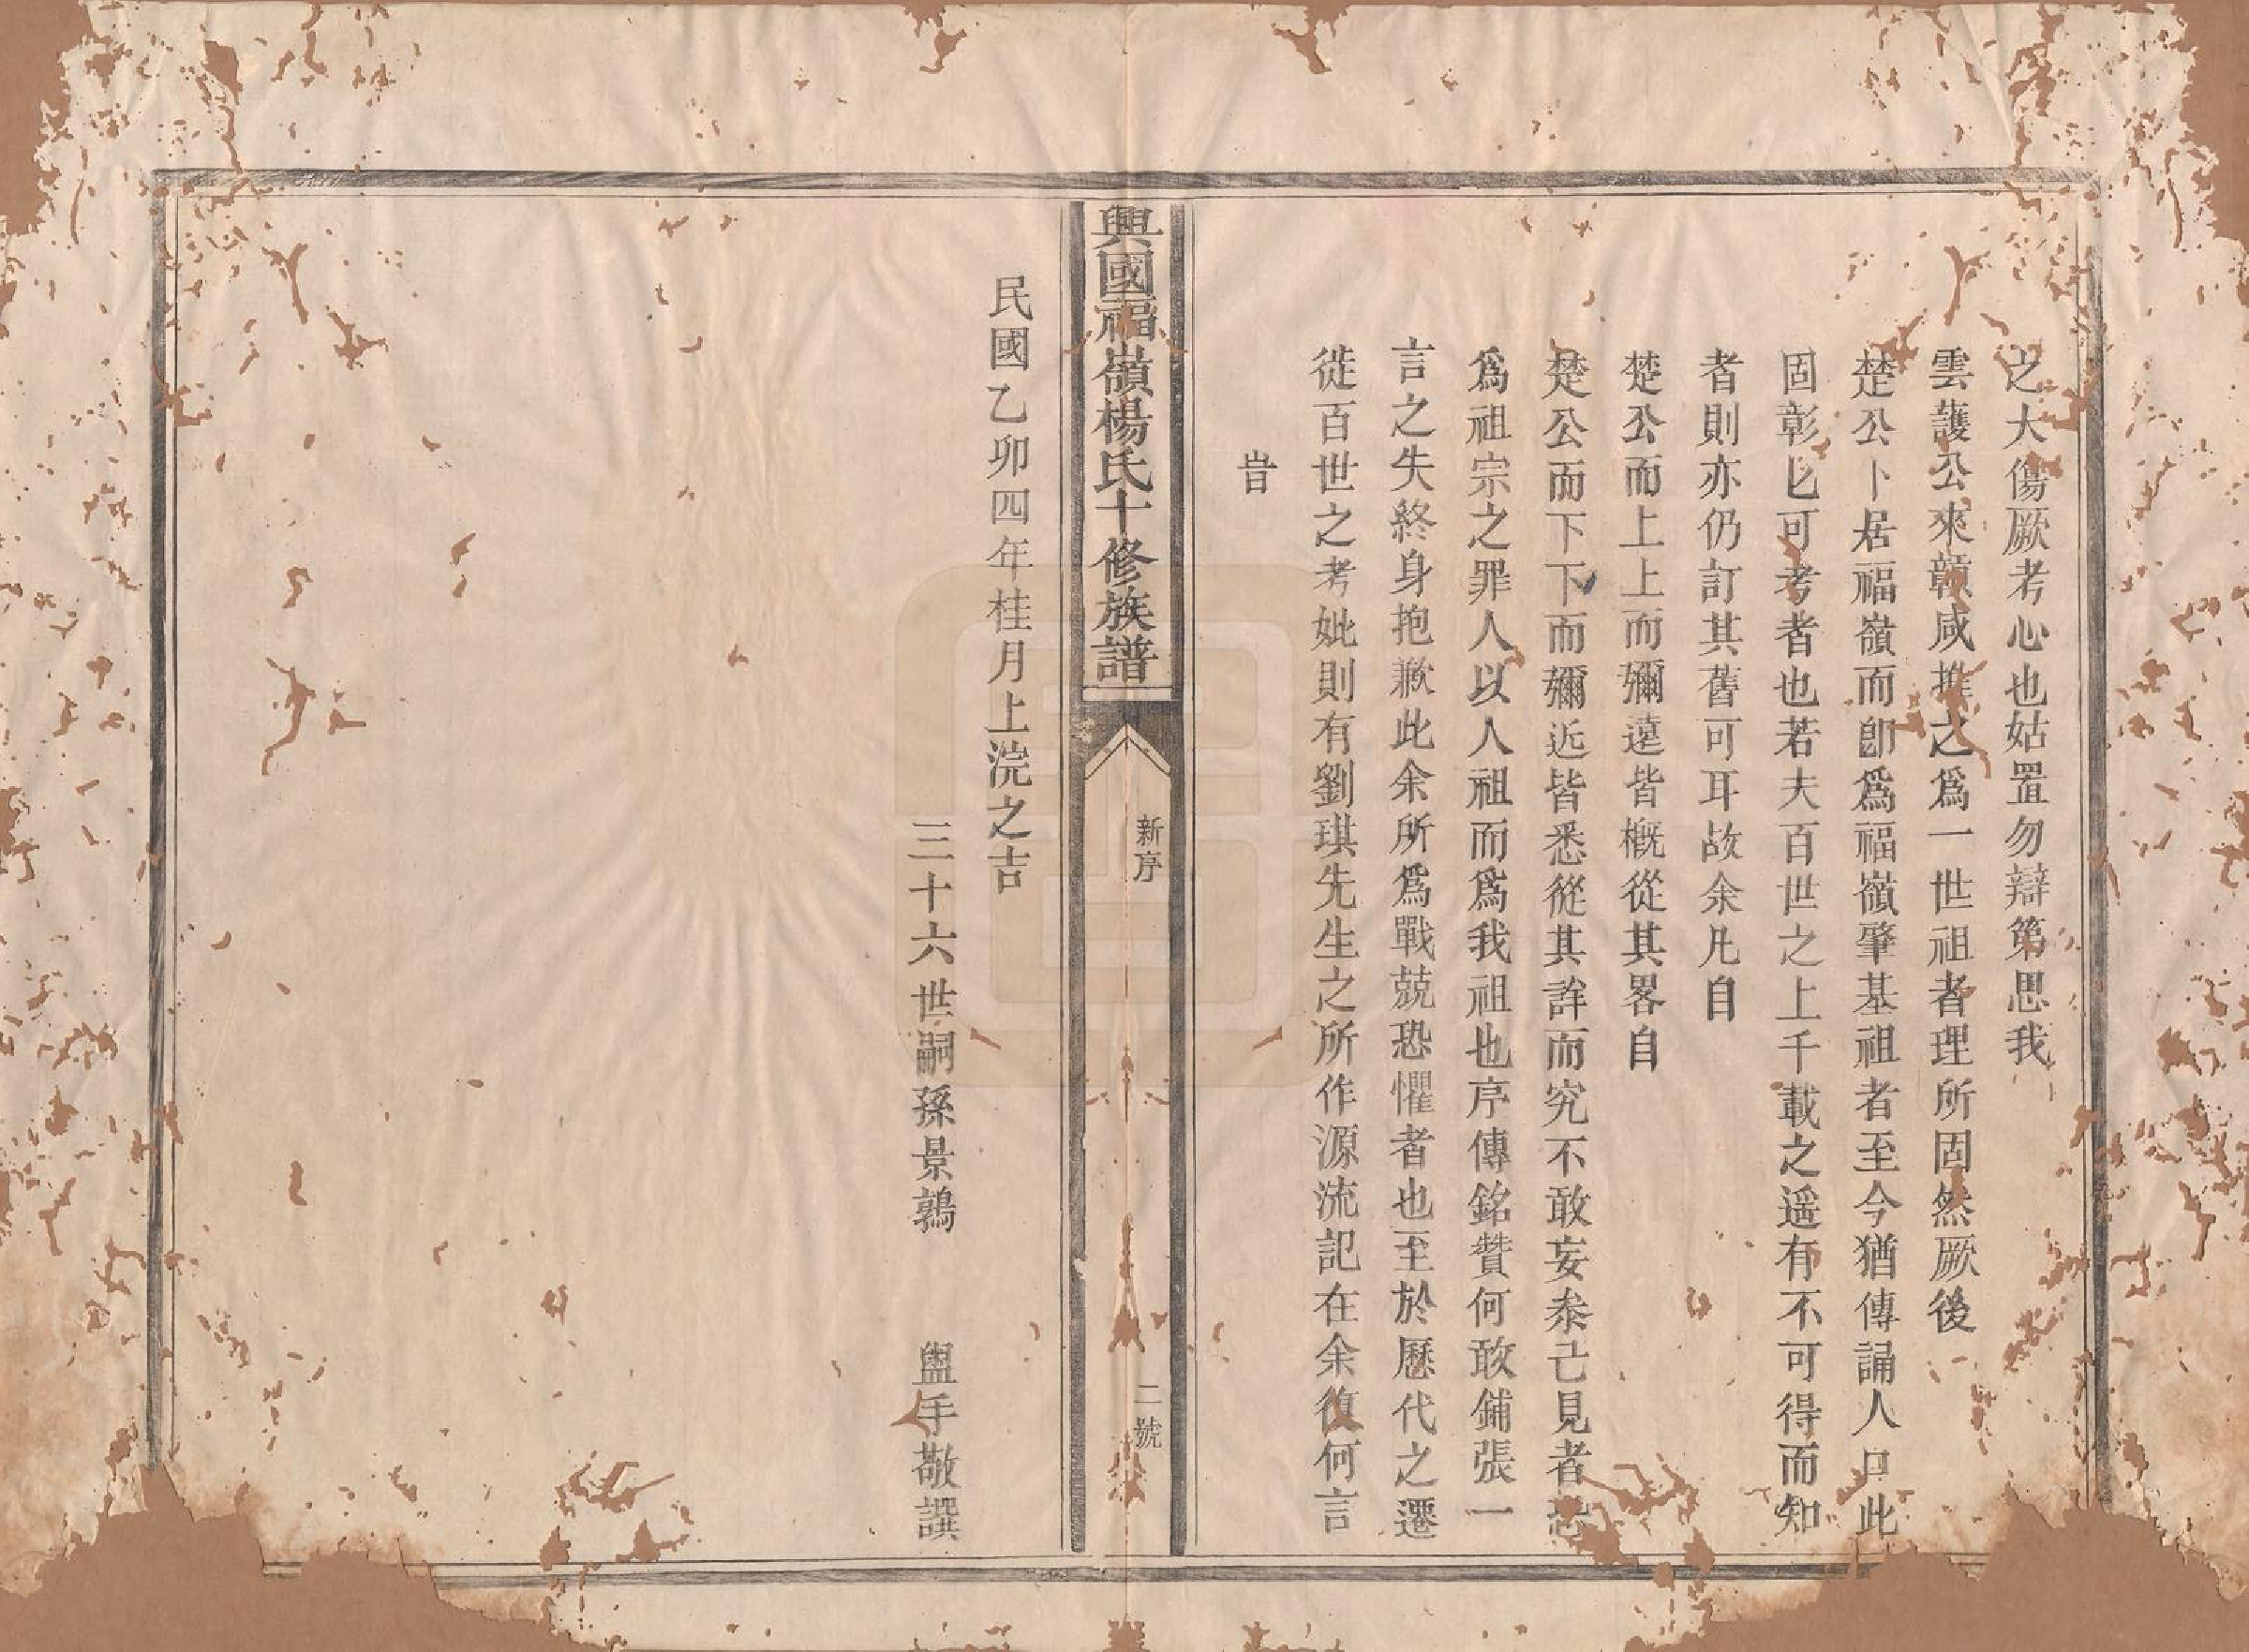 之大傷厥考心也姑置勿辯第思我
雲護公來贛咸推之爲一世祖者理所固然厥後
楚公卜居福嶺而卽爲福嶺肇基祖者至今猶傳誦人口此
固彰匕可考者也若夫百世之上千載之遥有不可得而知
者則亦仍訂其舊可耳故余凡自
楚公而上上而彌遠皆概從其畧自
楚公而下下而彌近皆悉從其詳而究不敢妄叅己見者恐
爲祖宗之罪人以人祖而爲我祖也序傳銘贊何敢鋪張一
言之失終身抱歉此余所爲戰兢恐懼者也至於歷代之遷
徙百世之考妣則有劉琪先生之所作源流記在余復何言
旹
興國福嶺楊氏十修族譜
新序
二號
民國乙卯四年桂月上浣之吉
三十六世嗣孫景鶉 盥手敬譔